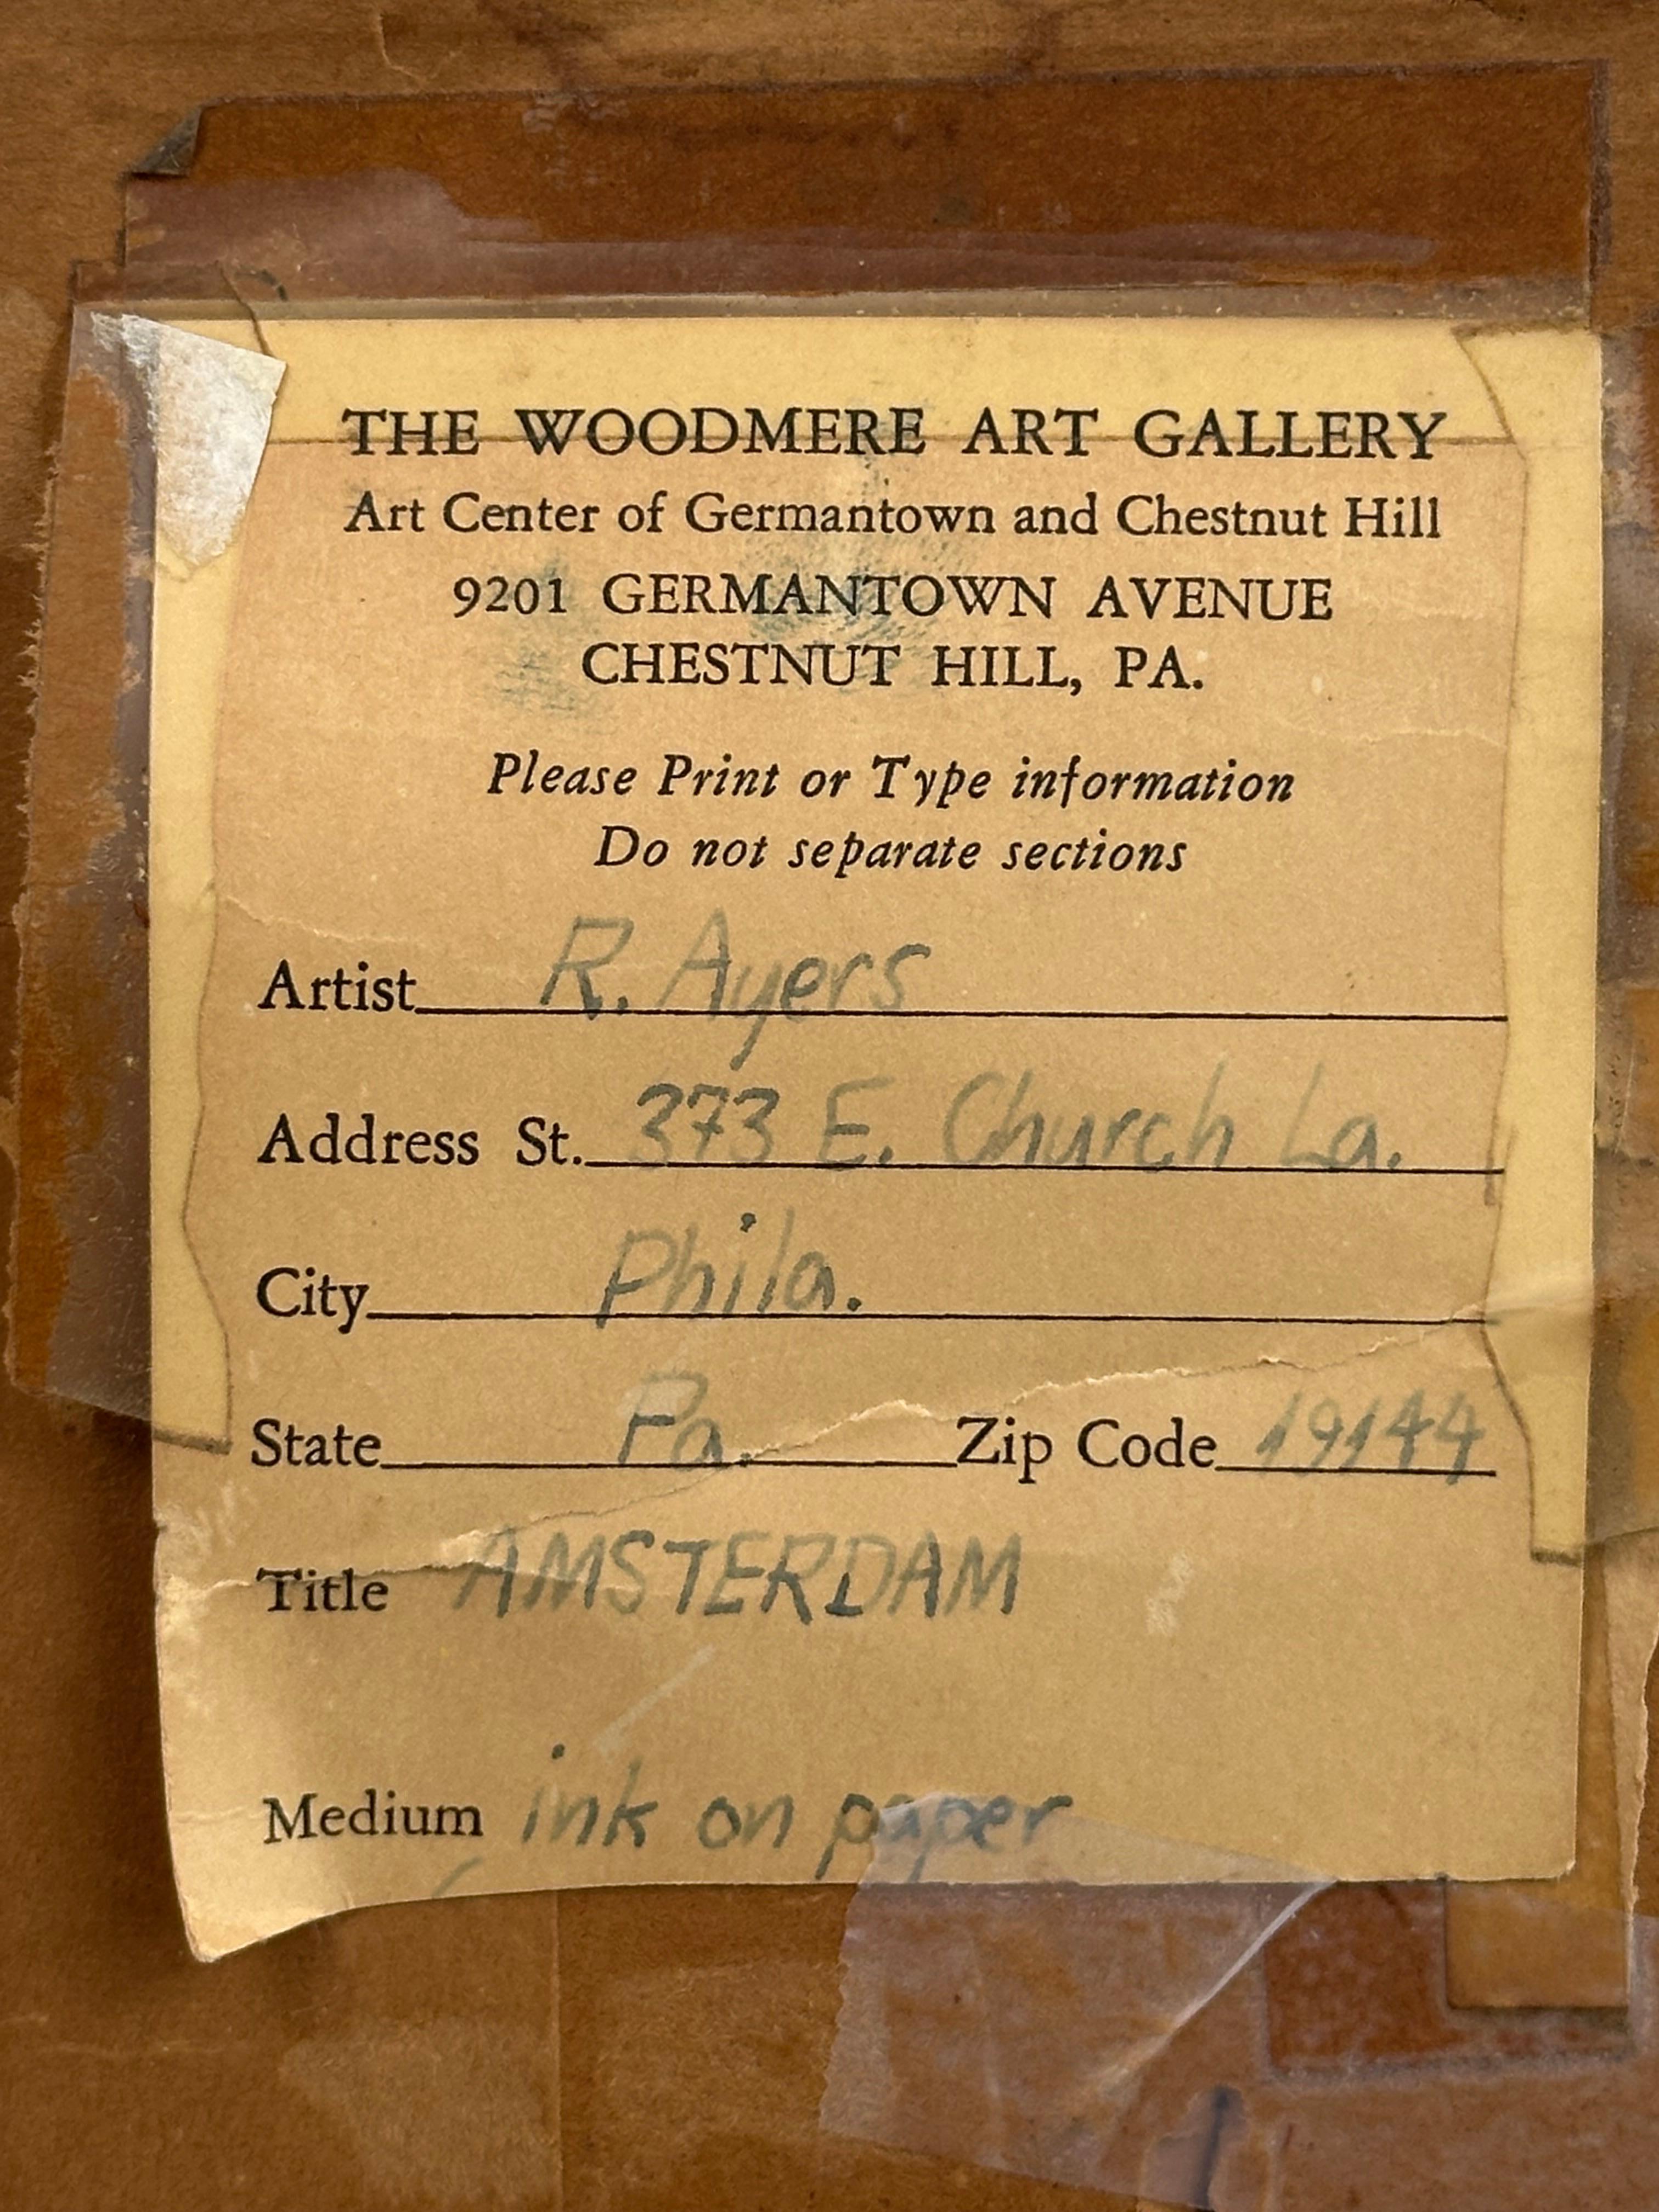 THE WOODMERE ART GALLERY
Art Center of Germantown and Chestnut Hill
9201 GERMANTOWN AVENUE
CHESTNUT HILL, PA.
Please Print or Type information
Do not separate sections
Artist R. Ayers
Address St. 373 E. Church La.
City Phila.
State Pa. Zip Code 19144
Title AMSTERDAM
Medium ink on paper